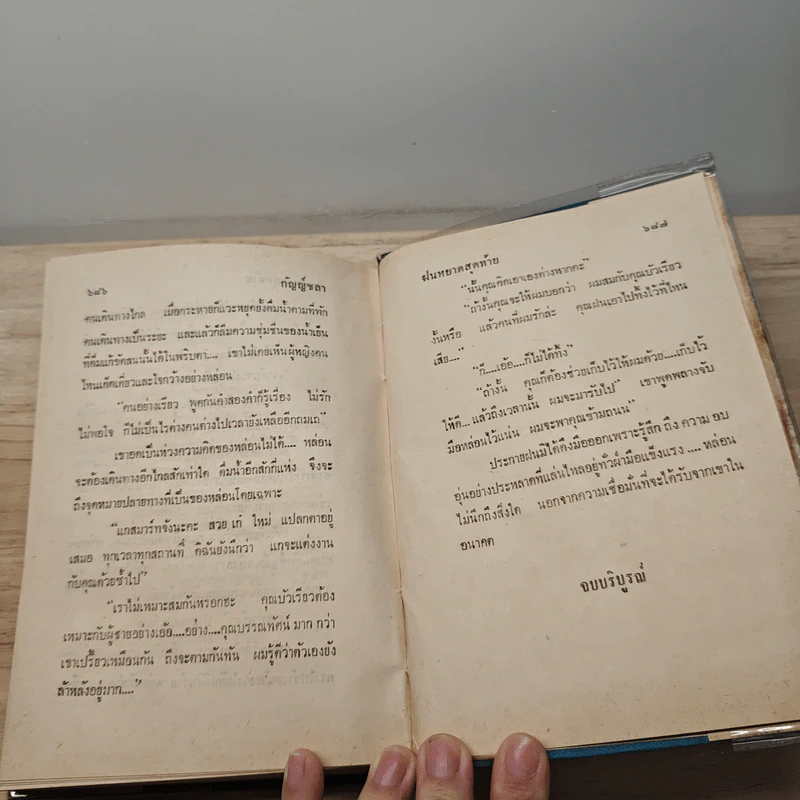 ๖๘๖
กัญญ์ชลา
คนเดินทางไกล เมื่อกระหายก็แวะหยุดยั้งดื่มน้ำตามที่พัก
คนเดินทางเป็นระยะ และแล้วก็ลืมความชุ่มชื่นของน้ำเย็น
ที่ดื่มแก้ขัดสนนั้นได้ในพริบตา.... เขาไม่เคยเห็นผู้หญิงคน
ไหนเด็ดเดี่ยวและใจกว้างอย่างหล่อน
“คนอย่างเรียว พูดกันคำสองคำก็รู้เรื่อง ไม่รัก
ไม่พอใจ ก็ไม่เป็นไรต่างคนต่างไปเวลายังเหลืออีกถมเถ”
เขาอดเป็นห่วงความคิดของหล่อนไม่ได้.... หล่อน
จะต้องเดินทางอีกไกลสักเท่าใด ดื่มน้ำอีกสักกี่แห่ง จึงจะ
ถึงจุดหมายปลายทางที่เป็นของหล่อนโดยเฉพาะ
“แกสมาร์ทจังนะคะ สวย เก๋ ใหม่ แปลกตาอยู่
เสมอ ทุกเวลาทุกสถานที่ ดิฉันยังนึกว่า แกจะแต่งงาน
กับคุณด้วยซ้ำไป”
“เราไม่เหมาะสมกันหรอกฮะ คุณบัวเรียวต้อง
เหมาะกับผู้ชายอย่างเอ้อ....อย่าง....คุณบรรณทัศน์ มาก กว่า
เขาเปรี้ยวเหมือนกัน ถึงจะตามกันทัน ผมรู้ดีว่าตัวเองยัง
ล้าหลังอยู่มาก....”
ฝนหยาดสุดท้าย
๖๘๗
“นั้นคุณคิดเอาเองต่างหากคะ”
“ถ้างั้นคุณจะให้ผมบอกว่า ผมสมกับคุณบัวเรียว
งั้นหรือ แล้วคนที่ผมรักล่ะ คุณฝนเอาไปทิ้งไว้ที่ไหน
เสีย....”
“ก็....เอ้อ....ก็ไม่ได้ทิ้ง”
“ถ้างั้น คุณก็ต้องช่วยเก็บไว้ให้ผมด้วย....เก็บไว้
ให้ดี... แล้วถึงเวลานั้น ผมจะมารับไป” เขาพูดพลางจับ
มือหล่อนไว้แน่น ผมจะพาคุณข้ามถนน”
ประกายฝนมิได้ดึงมือออกเพราะรู้สึก ถึง ความ อบ
อุ่นอย่างประหลาดที่แล่นไหลอยู่ทั่วฝ่ามือแข็งแรง .... หล่อน
ไม่นึกถึงสิ่งใด นอกจากความเชื่อมั่นที่จะได้รับจากเขาใน
อนาคต
จบบริบูรณ์